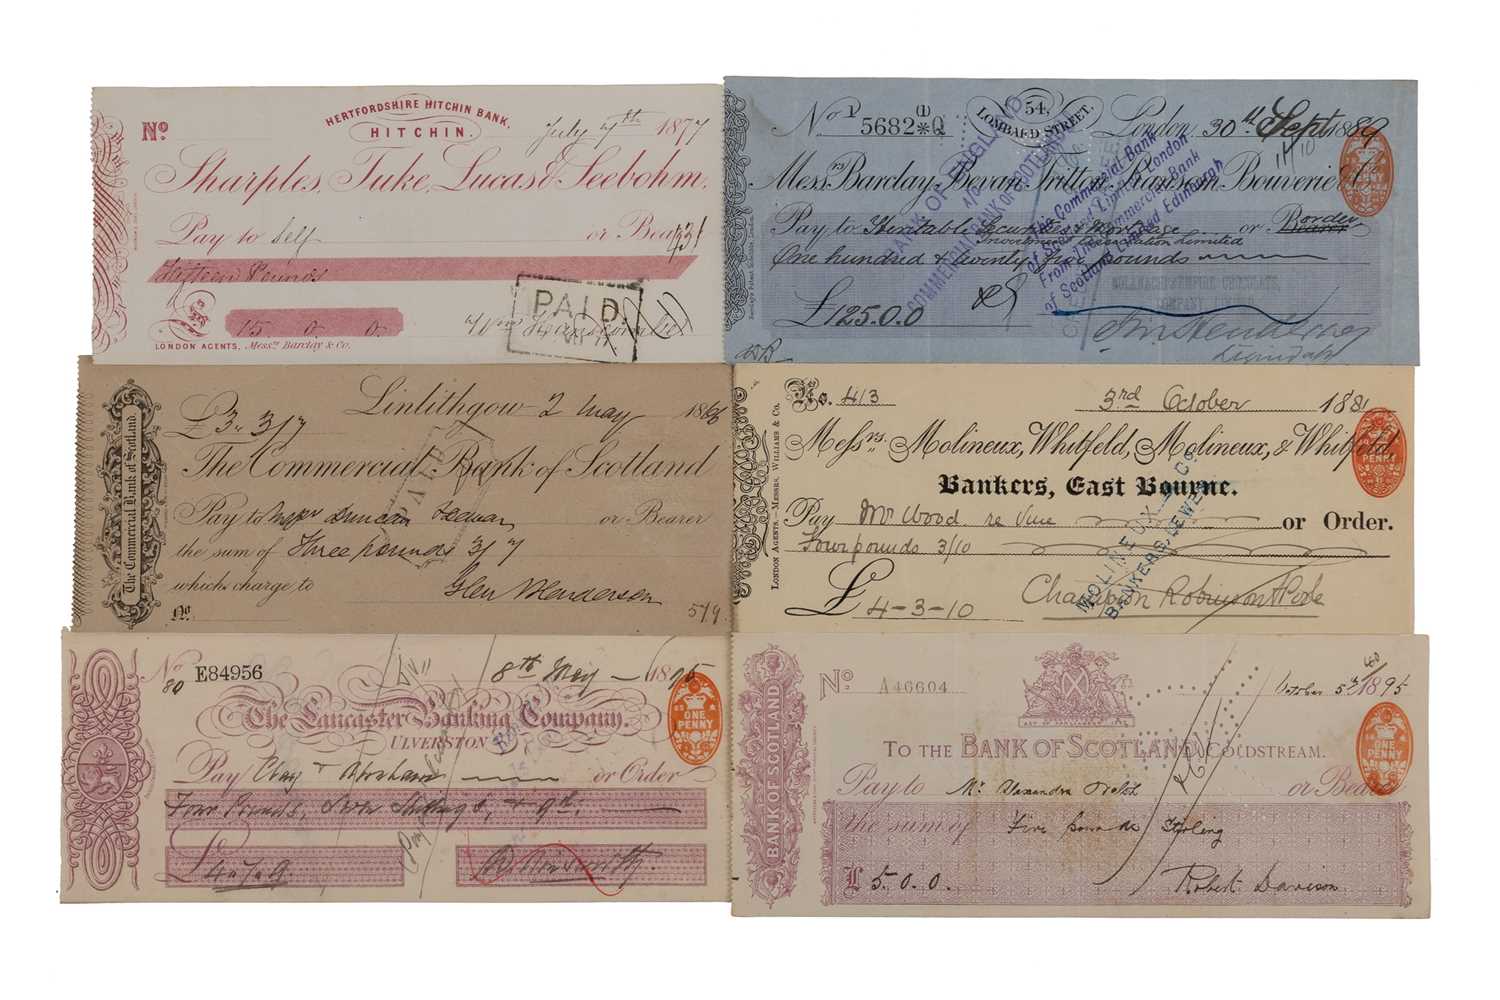 HERTFORDSHIRE HITCHIN BANK,
HITCHIN.
No.
July 7th 1877
Sharples, Tuke, Lucas & Seebohm.
Pay to Self or Bearer
Fifteen Pounds
15 . 0 . 0.
PAID
LONDON AGENTS, Messrs. Barclay & Co.
No. 5682*Q
54,
LOMBARD STREET.
London, 30th Sept 1889
11/10
Messrs. Barclay, Bevan, Tritton, Ransom, Bouverie & Co.
Pay to Heritable Securities & Mortgage or Bearer order
Investment Association Limited
One hundred & twenty five Pounds
£125.0.0
BANK OF ENGLAND
A/C
COMMERCIAL BANK OF SCOTLAND
The Commercial Bank
of Scotland Limited London
From The Commercial Bank
of Scotland Limited Edinburgh
COMPANY LIMITED
Liquidator
ONE
PENNY
The Commercial Bank of Scotland
£3. 3/7
Linlithgow 2 May 1868
The Commercial Bank of Scotland
Pay to Major Duncan or Bearer
the sum of Three pounds 3/7
which charge to
PAID
Glen & Henderson
No.
579
LONDON AGENTS.—MESSRS. WILLIAMS & Co.
No. 413
3rd October 1881
Messrs. Molineux, Whitfeld, Molineux, & Whitfeld
Bankers, East Bourne.
Pay Mr Wood re Vine or Order.
Four pounds 3/10
£ 4-3-10
Champion Robinson & Poole
MOLINEUX & Co
BANKERS, LEWES
ONE
PENNY
No. 80 E84956
8th May 1895
The Lancaster Banking Company.
ULVERSTON
Pay Clay & Abraham or Order
Four Pounds, Seven Shillings, & 9d.
£ 4.7.9
ONE
PENNY
BANK OF SCOTLAND
No. A46604
October 5th 1895
TO THE BANK OF SCOTLAND, COLDSTREAM.
Pay to Mr Alexander Welsh or Bearer
the sum of Five pounds Sterling
£ 5. 0. 0.
Robert Davison
ONE
PENNY